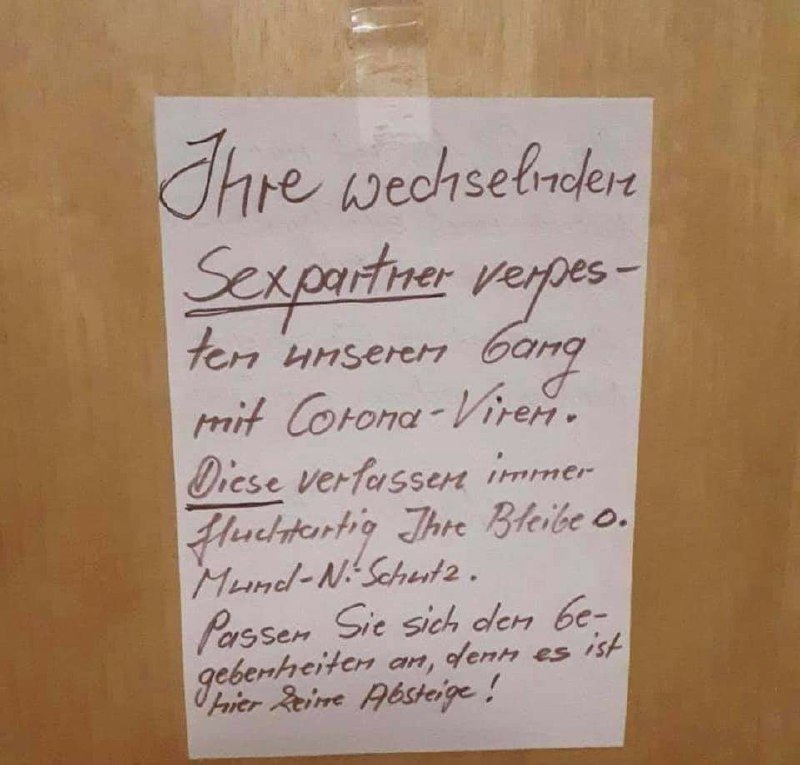 Ihre wechselnden
Sexpartner verpes-
ten unseren Gang
mit Corona-Viren.
Diese verlassen immer
fluchtartig Ihre Bleibe o.
Mund-N.-Schutz.
Passen Sie sich den Ge-
gebenheiten an, denn es ist
hier keine Absteige!